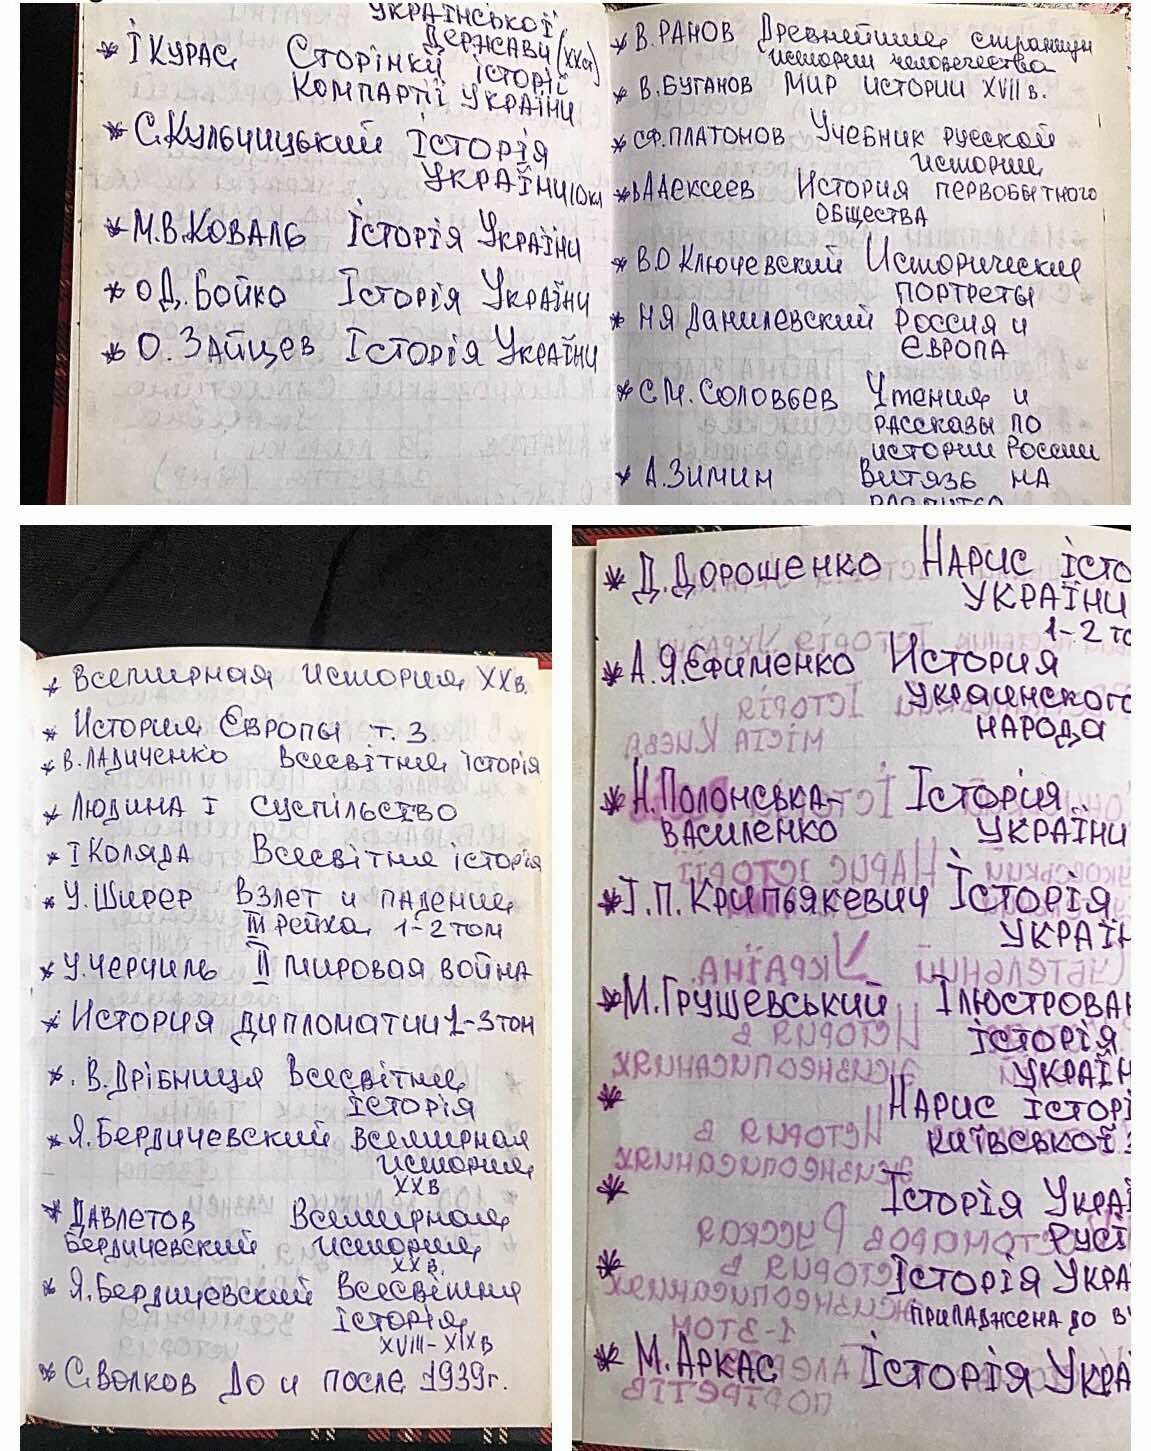 УКРАЇНСЬКОЇ
ДЕРЖАВИ (ХХст)
* І КУРАС Сторінки історії
Компартії України
* С.Кульчицький Історія
України 10кл
* М.В.Коваль Історія України
* О Д.Бойко Історія України
* О. Зайцев Історія України
* В. РАНОВ Древнейшие страницы
истории человечества
* В.БУГАНОВ Мир истории XVII в.
* С.Ф.ПЛАТОНОВ Учебник русской
истории
* В.П Алексеев История первобытного
общества
* В.О Ключевский Исторические
портреты
* Н Я Данилевский Россия и
Європа
* С.М. Соловьев Чтения и
рассказы по
истории России
* А.Зимин Витязь на
* Всемирная история XX в.
* История Європы т. 3
* В.Ладиченко Всесвітня історія
* Людина і суспільство
* І Коляда Всесвітня історія
* У. Ширер Взлет и падение
III рейха 1-2 том
* У.Черчиль II мировая война
* История дипломатии 1-3 том
* В.Дрібниця Всесвітня
історія
* Я.Бердичевский всемирная
история
XX в
* Давлетов Всемирная
Бердичевский история
XX в.
* Я.Бердичевский Всесвітня
історія
XVIII-XIX в
* С.Волков До и после 1939г.
* Д.Дорошенко Нарис істо
України
1-2 то
* А.Я.Єфименко История
украинского
народа
* Н.Полонська- Історія
Василенко України
* І.П.Крип'якевич Історія
Україн
* М.Грушевський Ілюстрован
історія
Україн
* Нарис історі
Київської з
* Історія Украї
Русі
* Історія Укра
прилажена до в
* М.Аркас Історія Укра